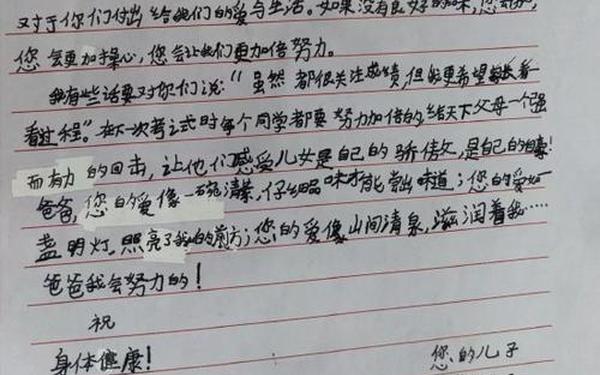 对于你们付出给我们的爱与生活。如果没有良好的成绩,您
您会更加操心,您会让我们更加倍努力。
我有些话要对你们说:“虽然都很关注成绩,但我更希望家长看
看过程。”在下一次考试时每个同学都要努力加倍的,给天下父母一个强
而有力的回击,让他们感受儿女是自己的骄傲,是自己的自豪!
爸爸,您的爱像一碗清茶,仔细品味才能尝出味道;您的爱如一
盏明灯,照亮了我的前方;您的爱像山间清泉,滋润着我……
爸爸我会努力的!
祝
身体健康!
您的儿子